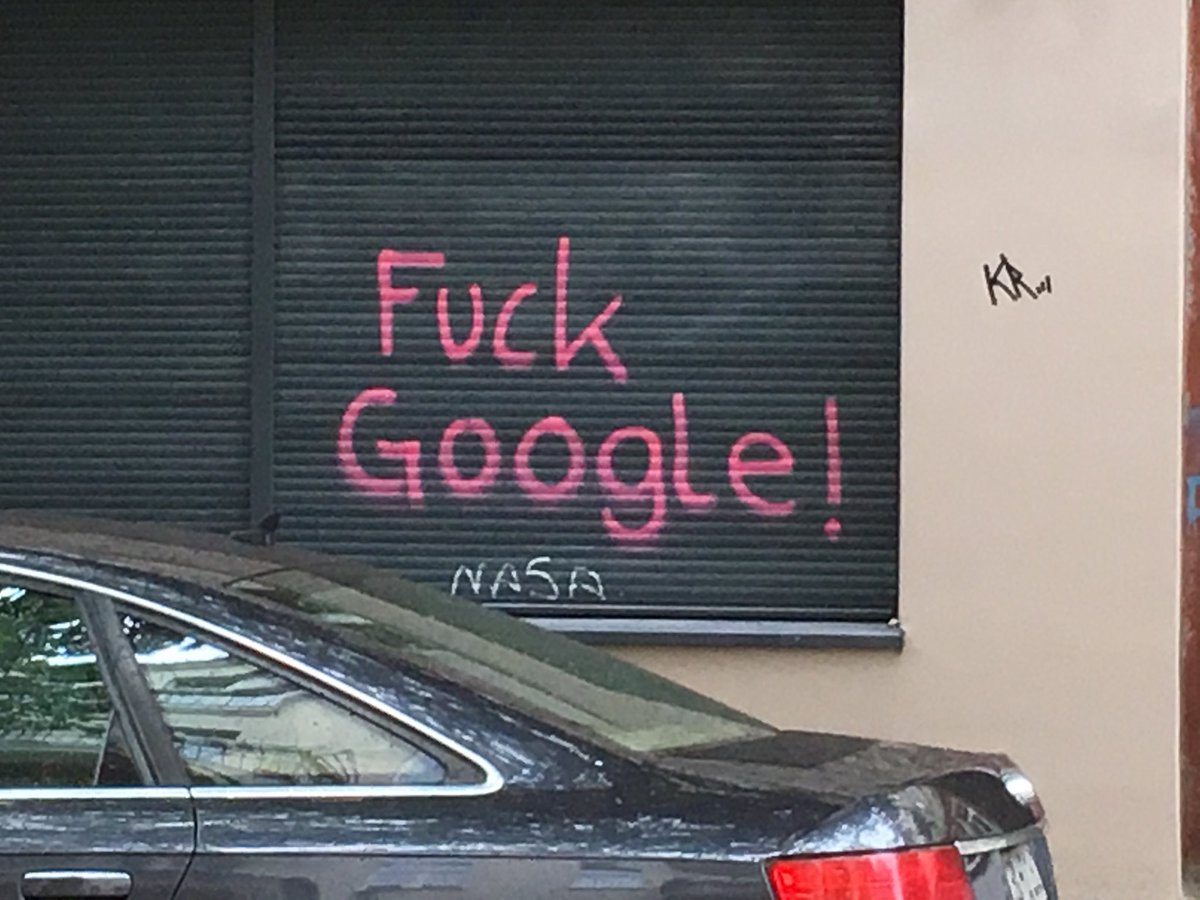 Fuck
Google!
NASA
KR...